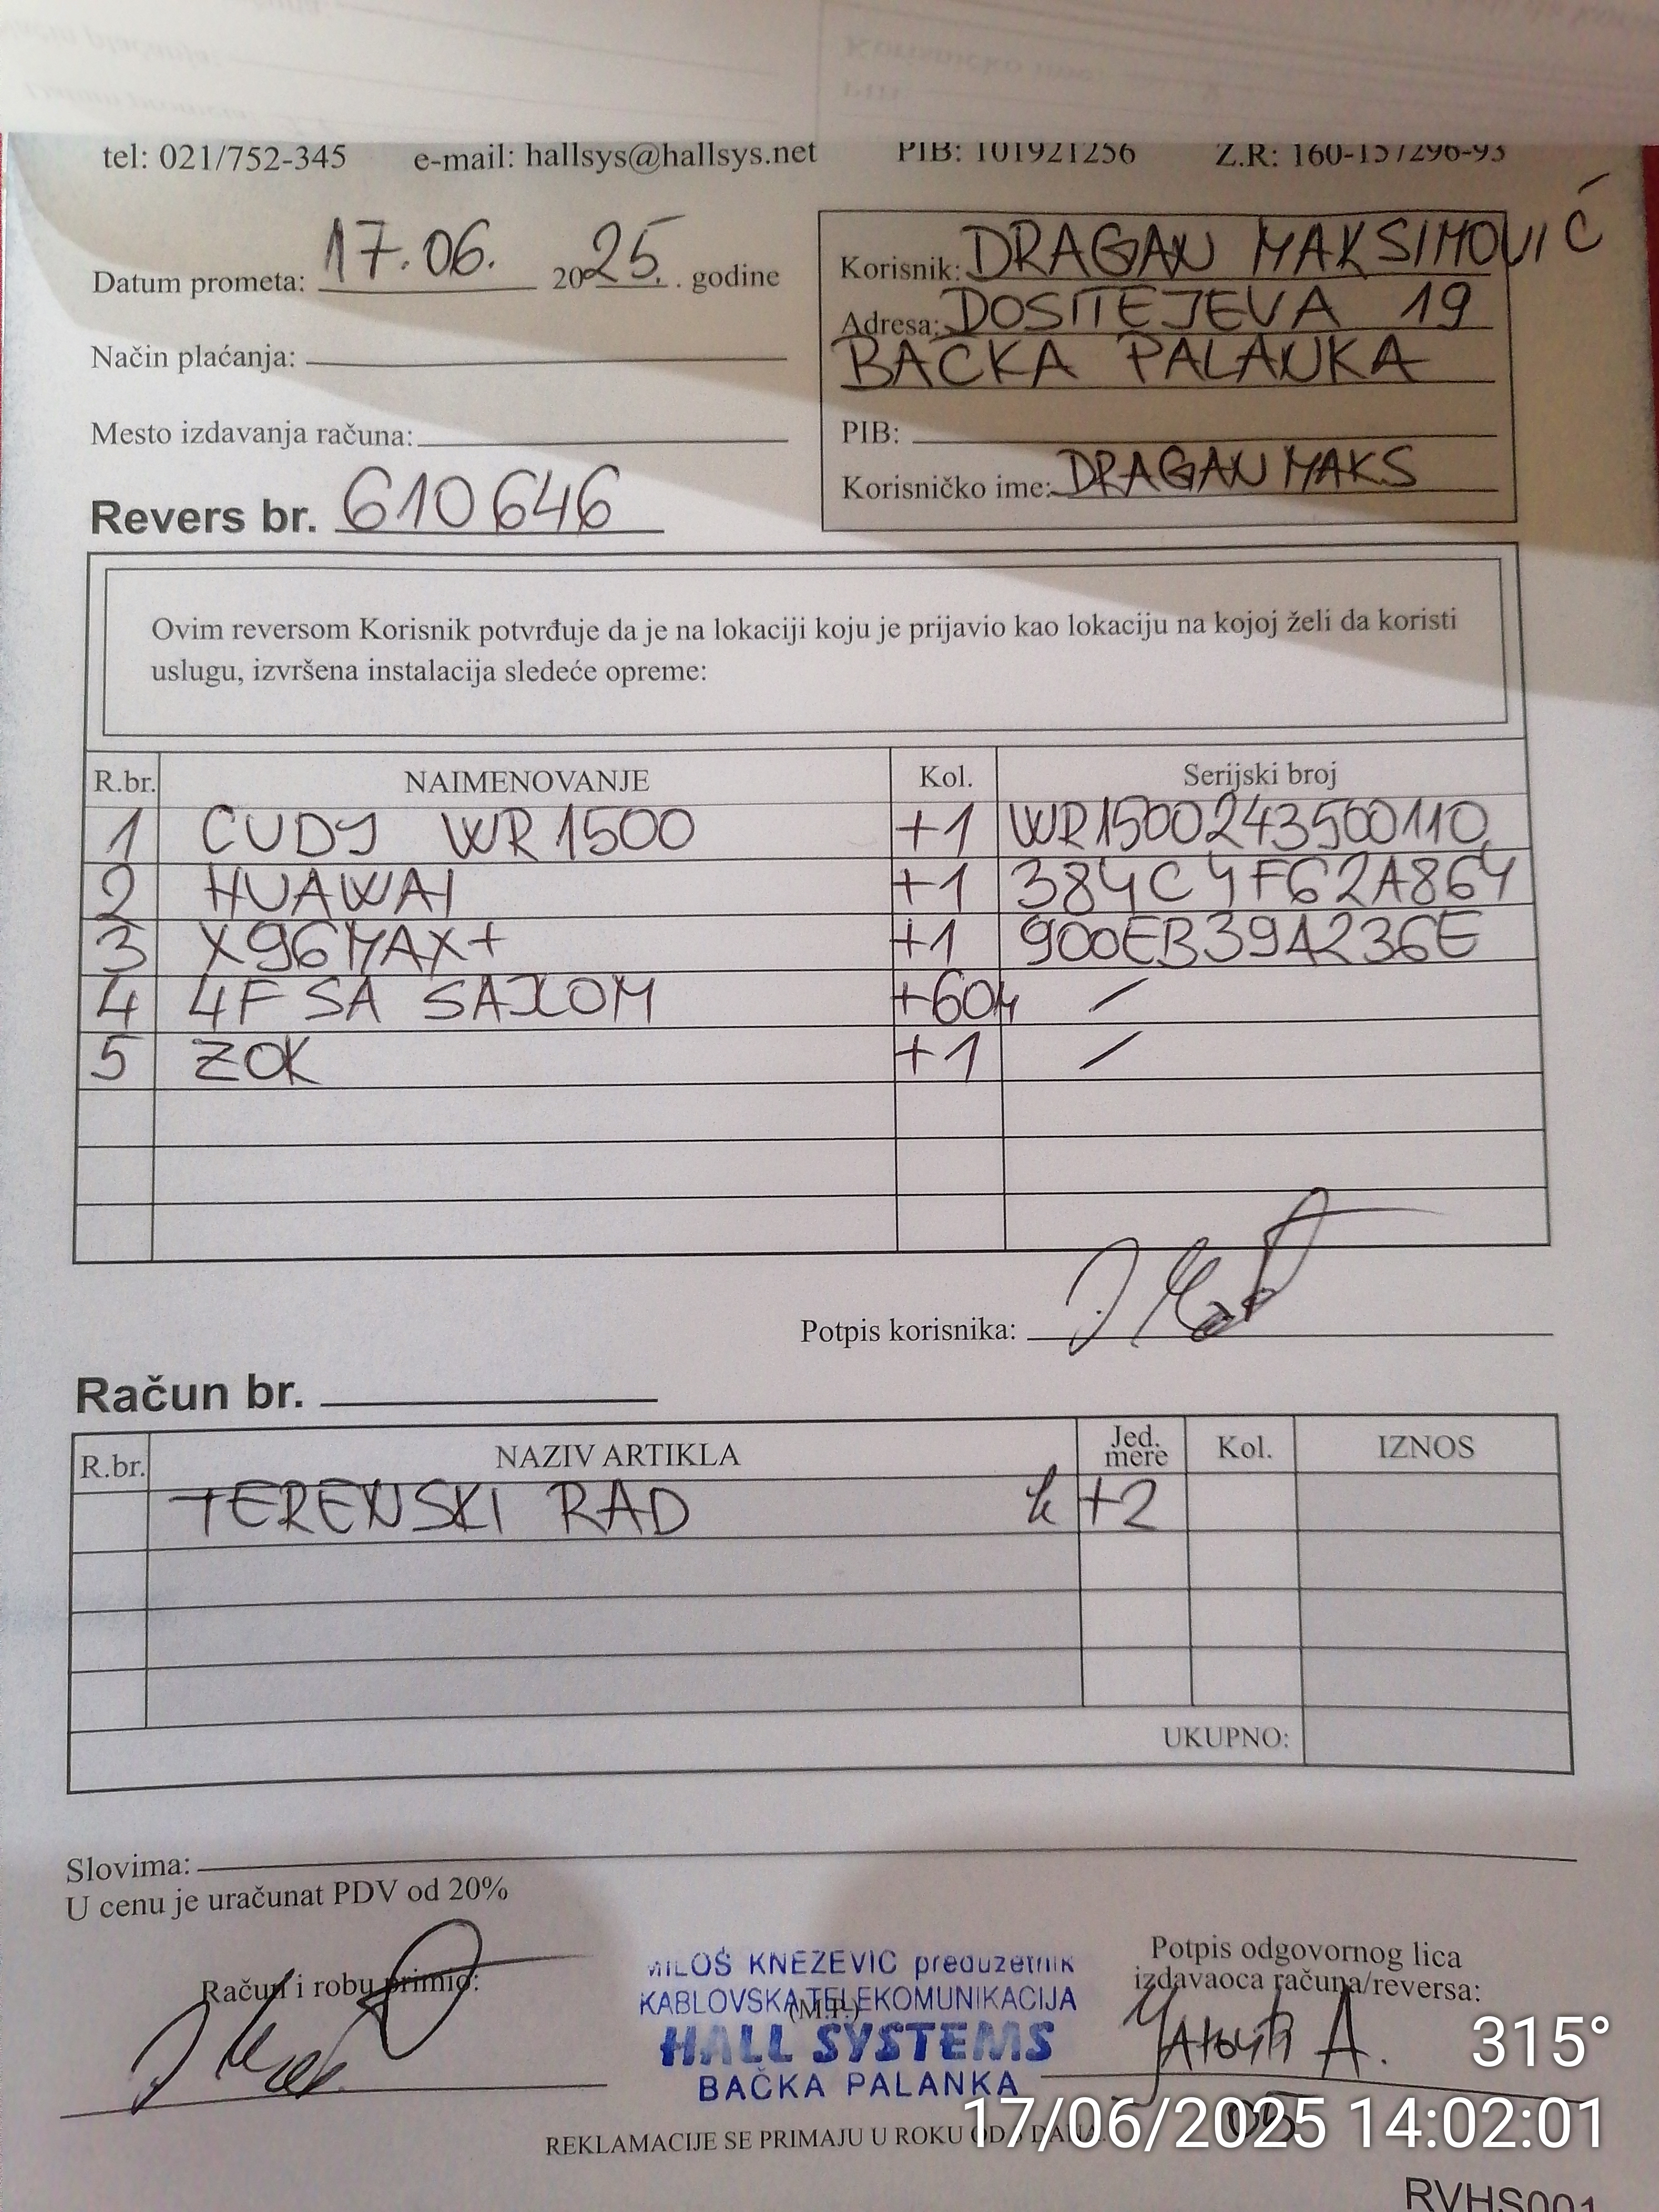 tel: 021/752-345 e-mail: hallsys@hallsys.net PIB: 101921256 Z.R: 160-157296-93
Datum prometa: 17.06. 2025. . godine
Način plaćanja:
Mesto izdavanja računa:
Revers br. 610646
Korisnik: DRAGAN MAKSIMOVIĆ
Adresa: DOSITEJEVA 19
BAČKA PALANKA
PIB:
Korisničko ime: DRAGANMAKS
Ovim reversom Korisnik potvrđuje da je na lokaciji koju je prijavio kao lokaciju na kojoj želi da koristi
uslugu, izvršena instalacija sledeće opreme:
R.br. NAIMENOVANJE Kol. Serijski broj
1 CUDY WR1500 +1 WR1500243500110
2 HUAWAI +1 384C4F62A864
3 X96MAX+ +1 900EB39A236E
4 4F SA SAJLOM +60m /
5 ZOK +1 /
Potpis korisnika:
Račun br.
R.br. NAZIV ARTIKLA Jed. mere Kol. IZNOS
TERENSKI RAD h +2
UKUPNO:
Slovima:
U cenu je uračunat PDV od 20%
Račun i robu primio:
MILOŠ KNEZEVIC preduzetnik
KABLOVSKA TELEKOMUNIKACIJA
(M.P.)
HALL SYSTEMS
BAČKA PALANKA
Potpis odgovornog lica
izdavaoca računa/reversa:
315°
17/06/2025 14:02:01
REKLAMACIJE SE PRIMAJU U ROKU OD DANA.
RVHS001